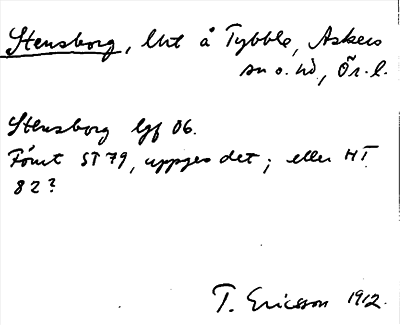 Stensborg, lht å Tybble, Askers
sn o. hd, Ör. l.
Stensborg lgf 06.
Förut ST 79, uppges det; eller HT
82?
T. Ericsson 1912.